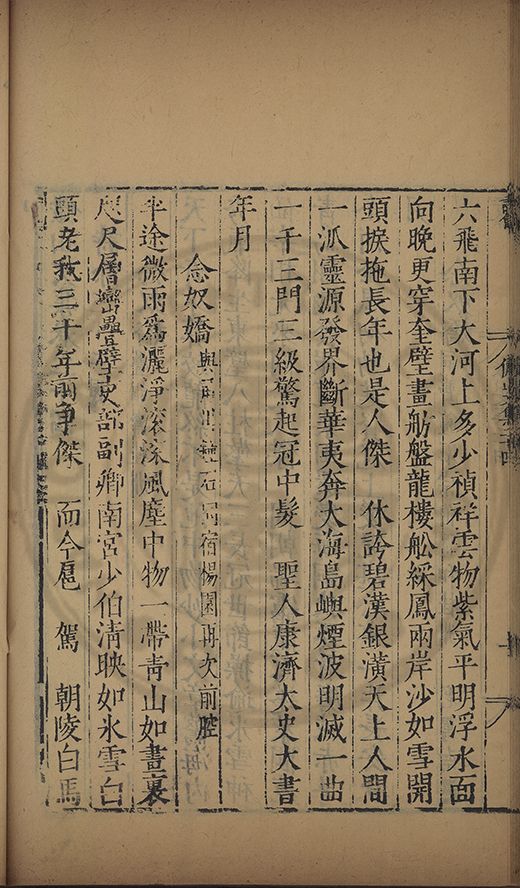 六飛南下大河上多少禎祥雲物紫氣平明浮水面
向晚更穿奎璧畫舫盤龍樓舩綵鳳兩岸沙如雪開
頭捩拖長年也是人傑　休誇碧漢銀潢天上人間
一派靈源發界斷華夷奔大海島嶼煙波明滅一曲
一千三門三級驚起冠中髮　聖人康濟太史大書
年月
念奴嬌 與 石同宿楊園再次前腔
半途微雨爲灑淨滾滾風塵中物一帶靑山如畫裏
咫尺層巒疊壁吏部副卿南宮少伯淸映如氷雪白
頭老我三十年前爭傑　而今扈　駕　朝陵白馬